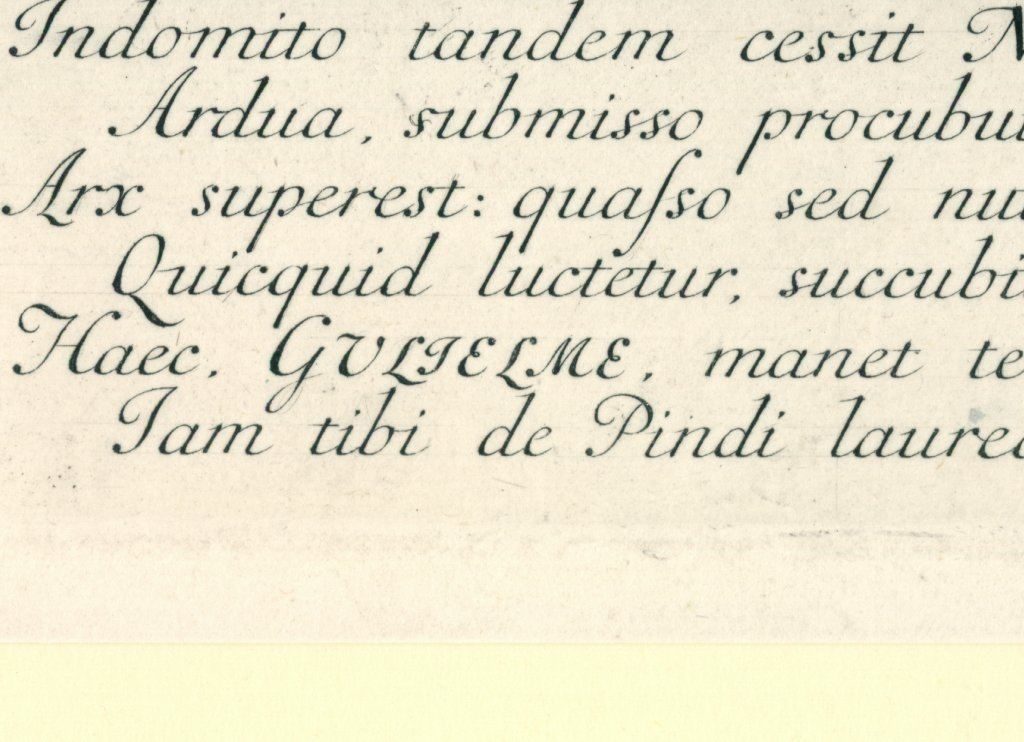 Indomito tandem cessit
Ardua, submisso procubu
Arx superest: quaſso sed nu
Quicquid luctetur, succubi
Haec, GVLIELME, manet te
Iam tibi de Pindi laure